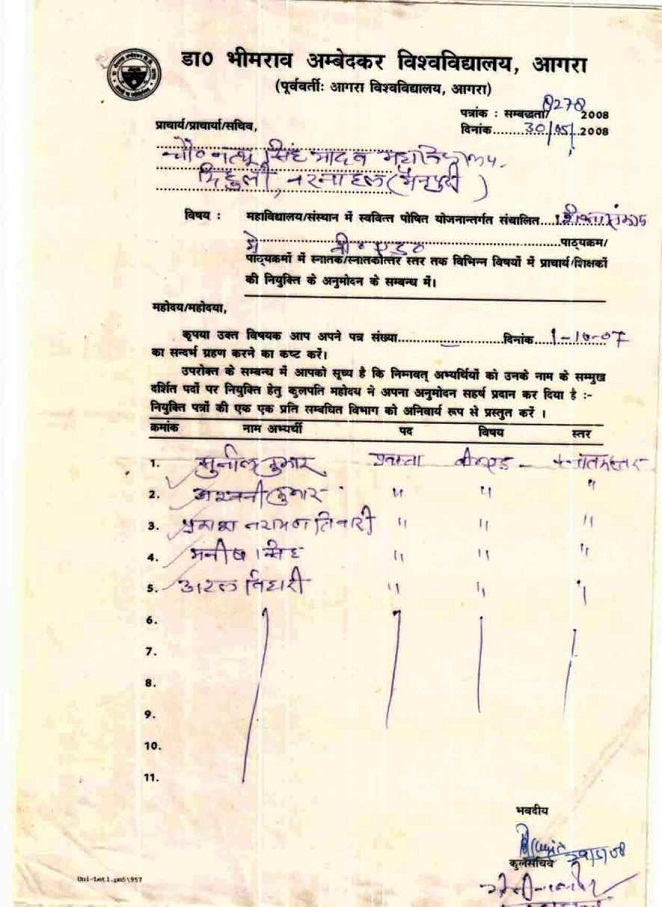 डा० भीमराव अम्बेदकर विश्वविद्यालय, आगरा
(पूर्ववर्तीः आगरा विश्वविद्यालय, आगरा)
पत्रांक : सम्बद्धता/8278 2008
प्राचार्य/प्राचार्या/सचिव,
दिनांक 30/05/2008
चौ० नत्थू सिंह यादव महाविद्यालय
(मैनपुरी)
विषय : महाविद्यालय/संस्थान में स्ववित्त पोषित योजनान्तर्गत संचालित
पाठ्यक्रम/
पाठ्यक्रमों में स्नातक/स्नातकोत्तर स्तर तक विभिन्न विषयों में प्राचार्य/शिक्षकों
की नियुक्ति के अनुमोदन के सम्बन्ध में।
महोदय/महोदया,
कृपया उक्त विषयक आप अपने पत्र संख्या दिनांक 1-10-07
का सन्दर्भ ग्रहण करने का कष्ट करें।
उपरोक्त के सम्बन्ध में आपको सूच्य है कि निम्नवत् अभ्यर्थियों को उनके नाम के सम्मुख
दर्शित पदों पर नियुक्ति हेतु कुलपति महोदय ने अपना अनुमोदन सहर्ष प्रदान कर दिया है :-
नियुक्ति पत्रों की एक एक प्रति सम्बधित विभाग को अनिवार्य रूप से प्रस्तुत करें ।
क्रमांक नाम अभ्यर्थी पद विषय स्तर
1. सुनील कुमार प्रवक्ता बी०एड०
2. अश्वनी कुमार " " "
3. प्रकाश नरायण तिवारी " " "
4. मनीष सिंह " " "
5. अटल विहारी " " "
6.
7.
8.
9.
10.
11.
भवदीय
कुलसचिव